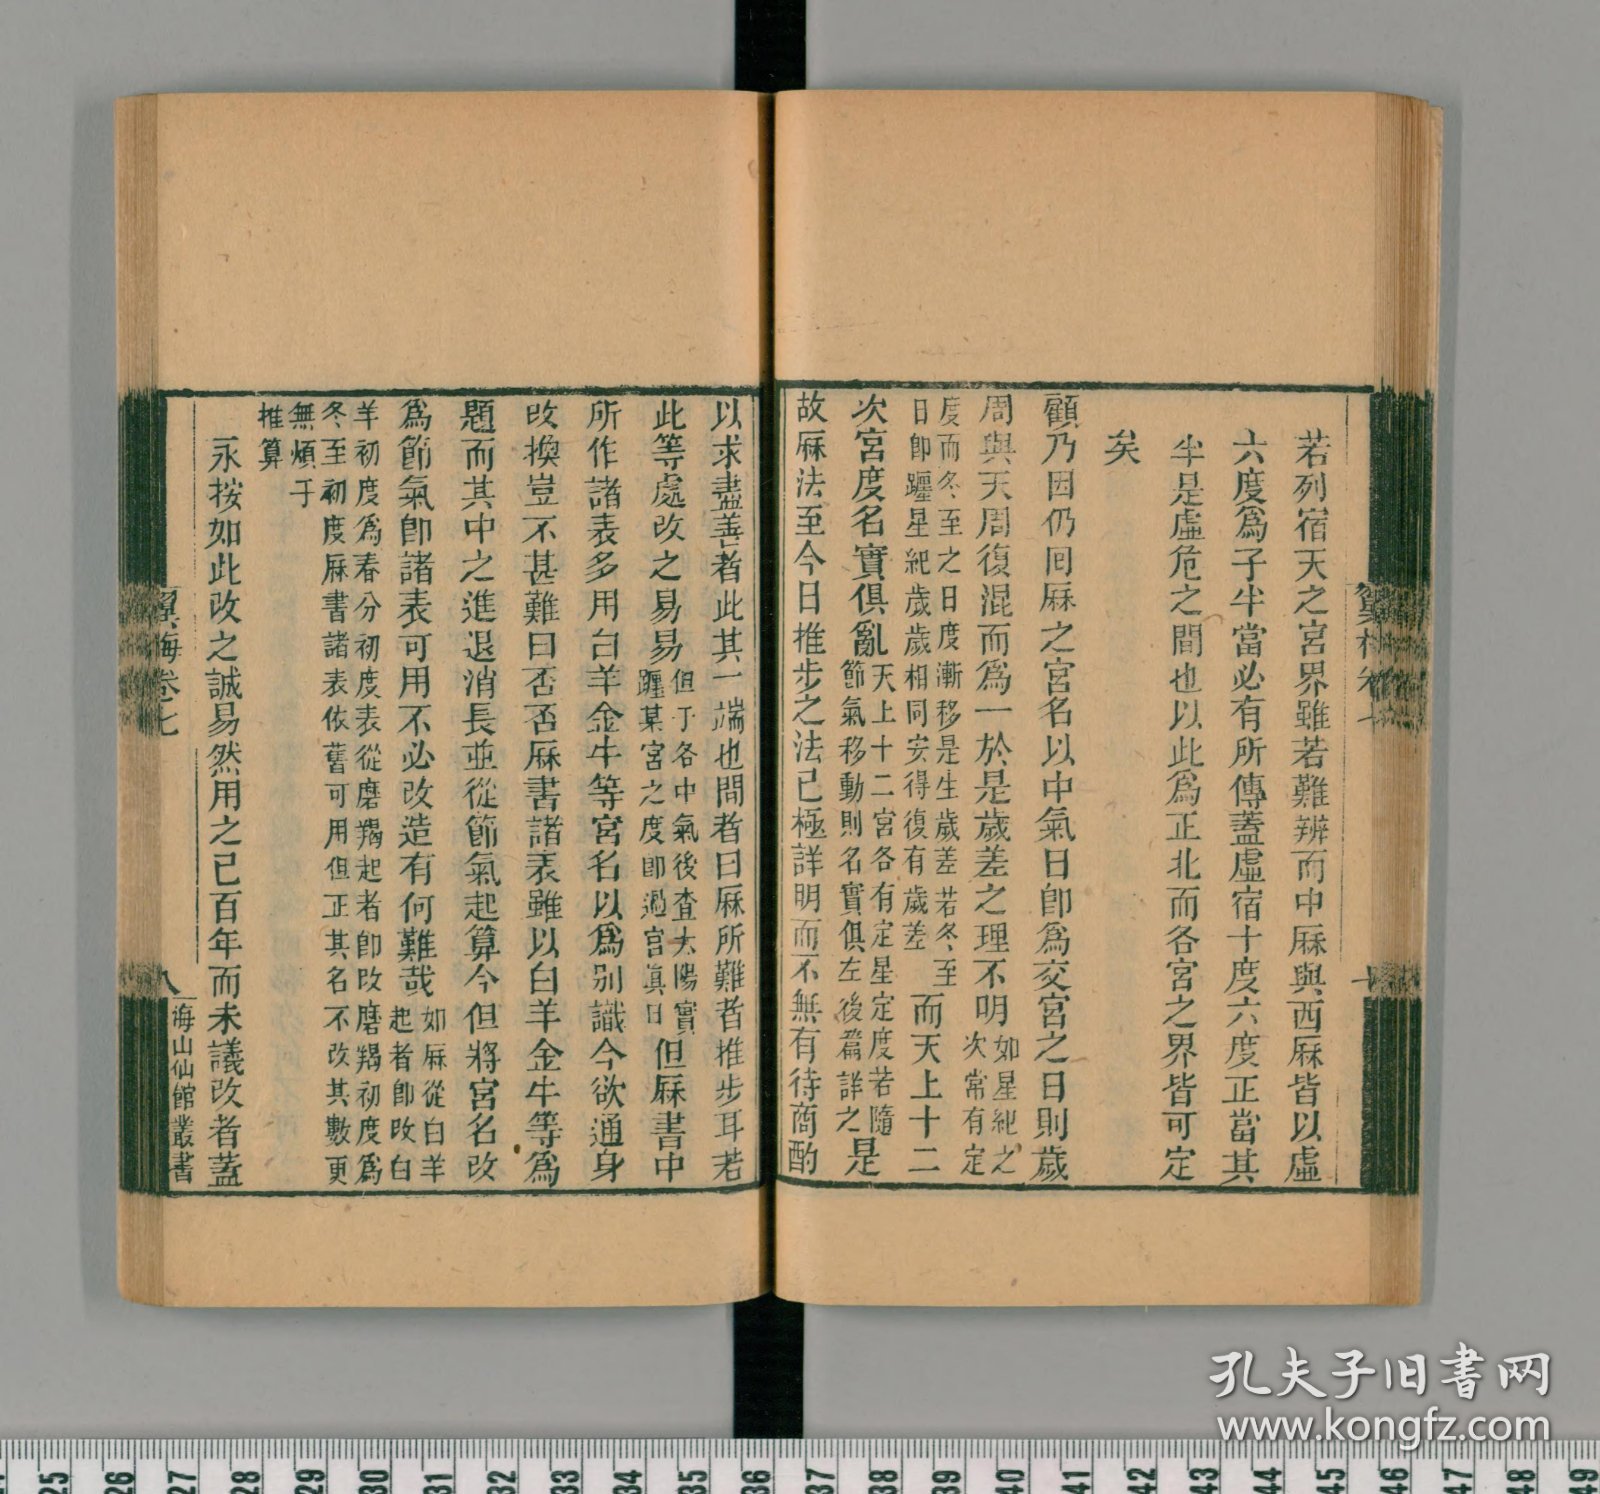 若列宿天之宮界雖若難辨而中厤與西厤皆以虛
六度爲子半當必有所傳蓋虛宿十度六度正當其
半是虛危之間也以此爲正北而各宮之界皆可定
矣
顧乃因仍回厤之宮名以中氣日卽爲交宮之日則歲
周與天周復混而爲一於是歲差之理不明如星紀之
次常有定
度而冬至之日度漸移是生歲差若冬至
日卽躔星紀歲歲相同安得復有歲差而天上十二
次宮度名實俱亂天上十二宮各有定星定度若隨
節氣移動則名實俱左後篇詳之是
故厤法至今日推步之法已極詳明而不無有待商酌
以求盡善者此其一端也問者曰厤所難者推步耳若
此等處改之易易但于各中氣後查太陽實
躔某宮之度卽過宮眞日但厤書中
所作諸表多用白羊金牛等宮名以爲別識今欲通身
改換豈不甚難曰否否厤書諸表雖以白羊金牛等爲
題而其中之進退消長並從節氣起算今但將宮名改
爲節氣卽諸表可用不必改造有何難哉如厤從白羊
起者卽改白
羊初度爲春分初度表從磨羯起者卽改磨羯初度爲
冬至初度厤書諸表依舊可用但正其名不改其數更
無煩于
推算
永按如此改之誠易然用之已百年而未議改者蓋
翼梅卷七
八
海山仙館叢書
孔夫子旧书网
www.kongfz.com
25 26 27 28 29 30 31 32 33 34 35 36 37 38 39 40 41 42 43 44 45 46 47 48 49